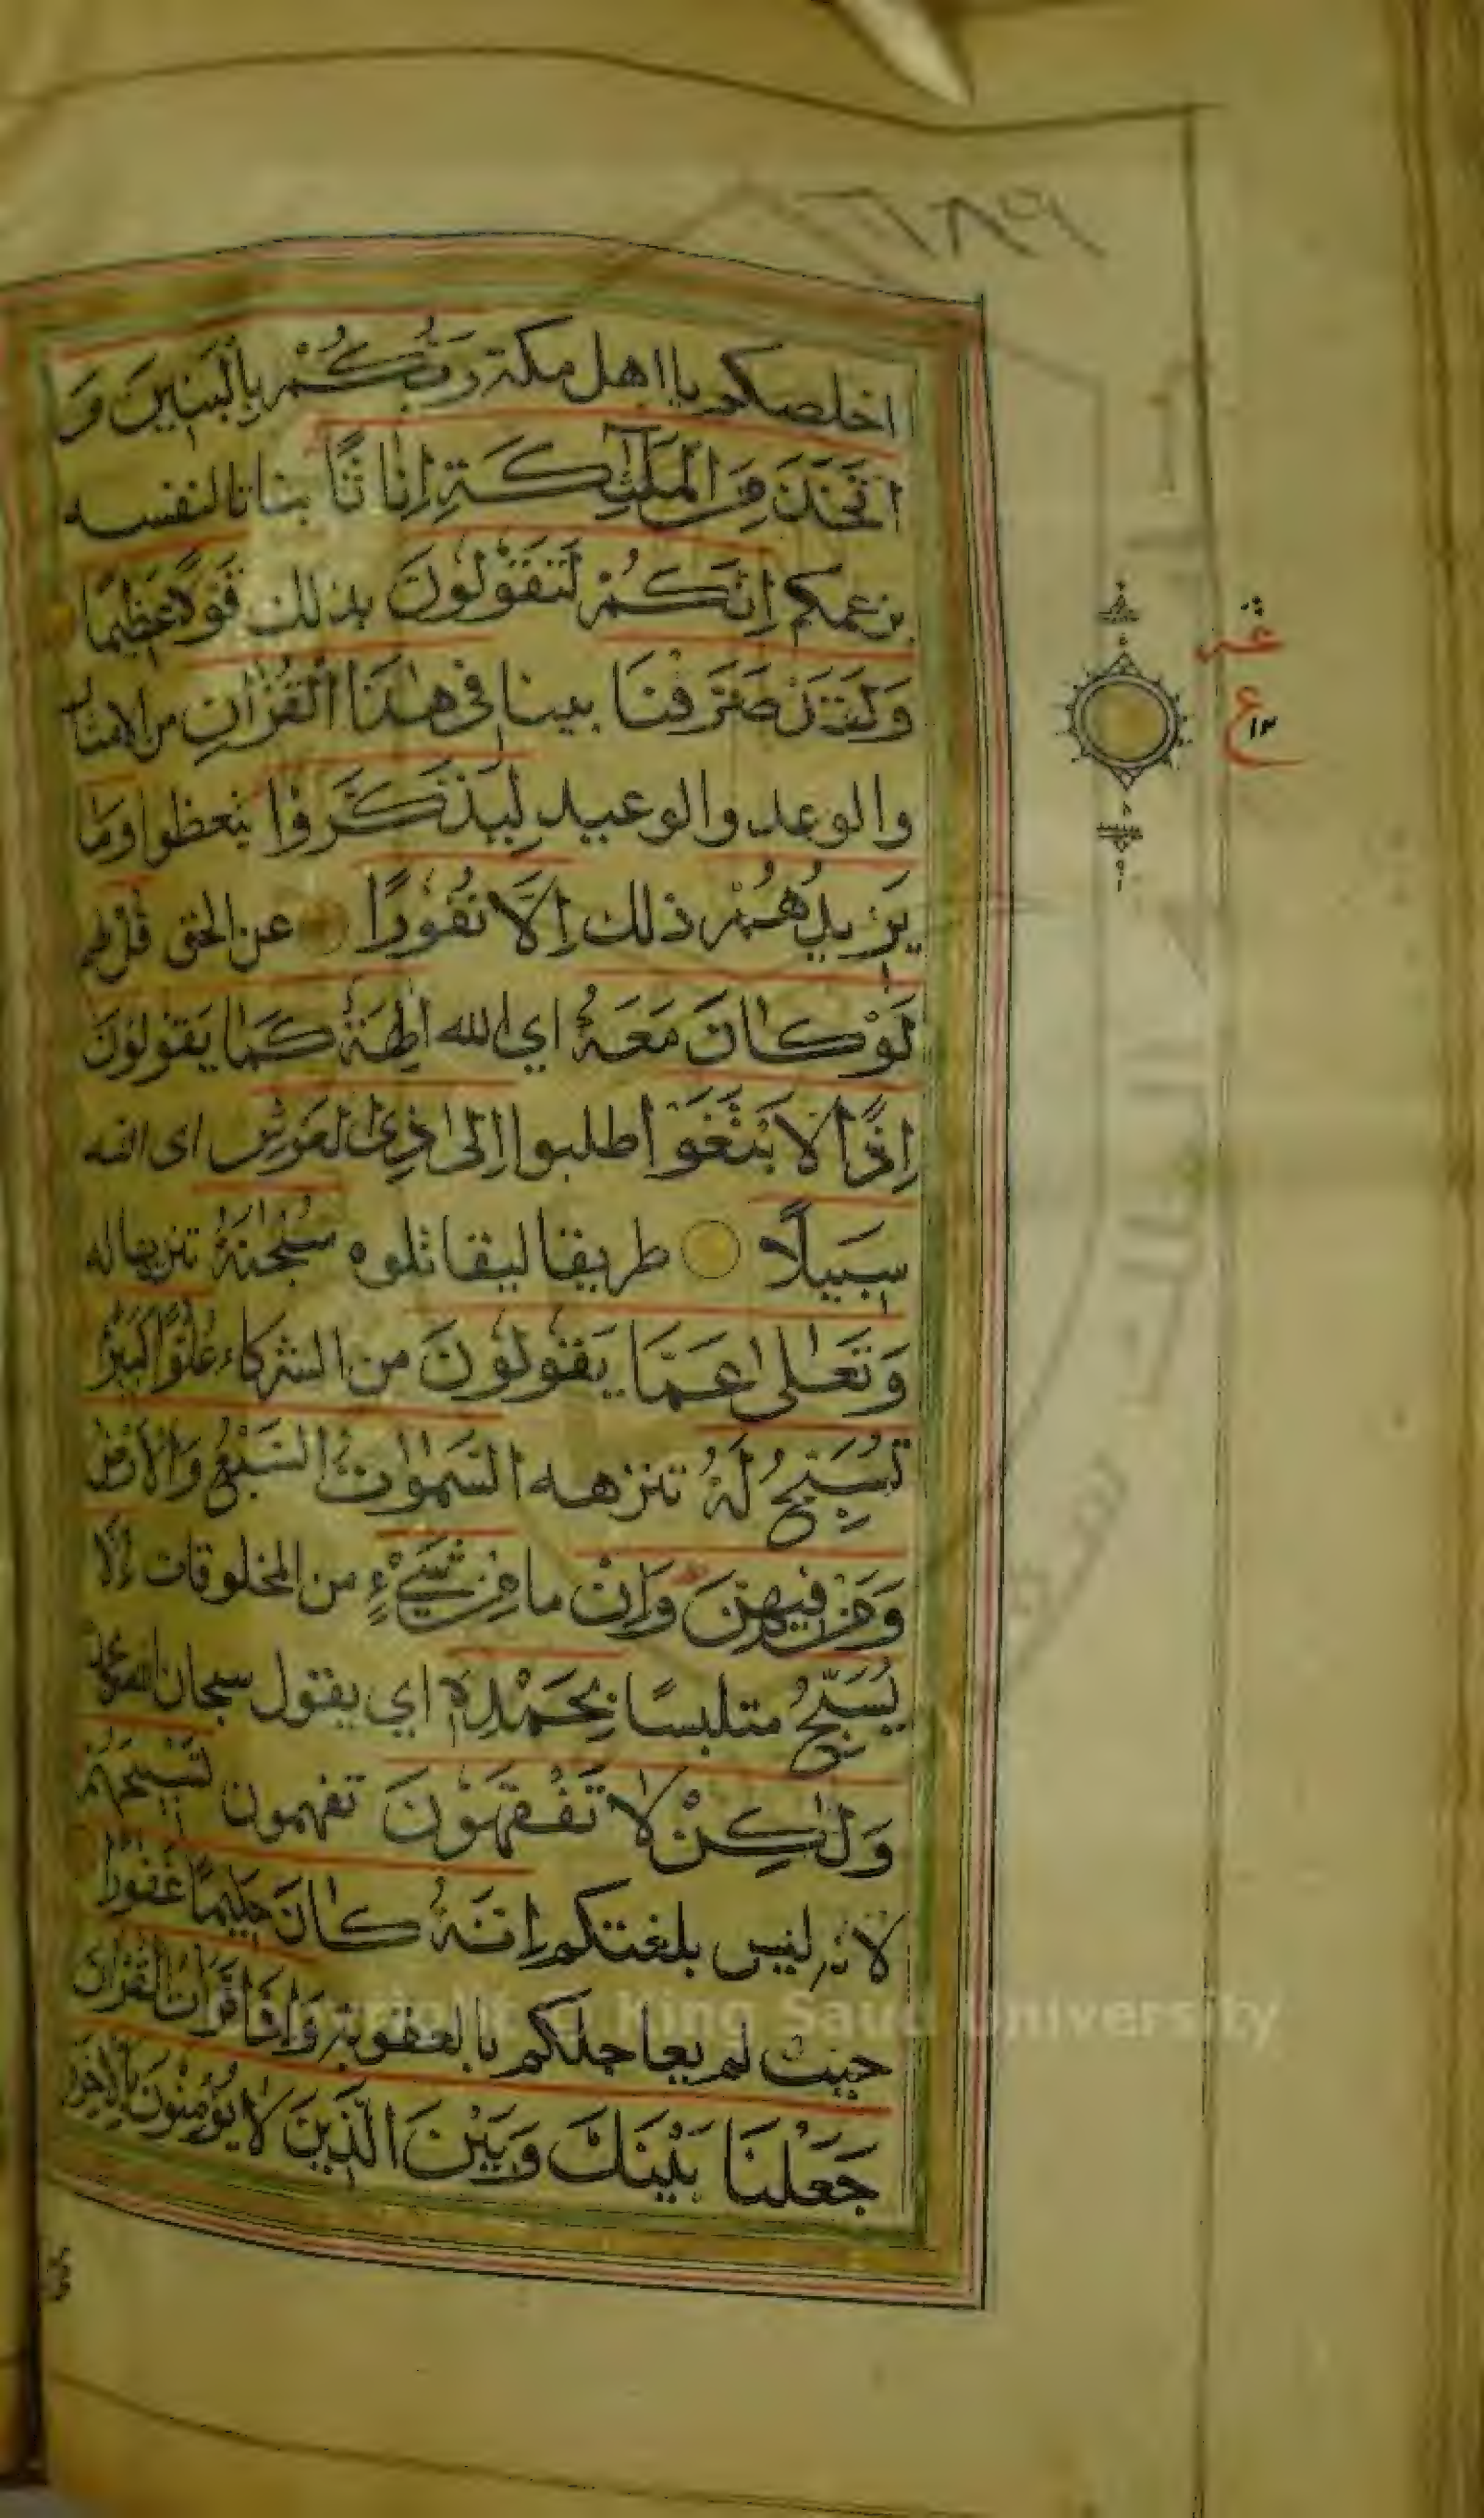 ٦٨٩
اخلصكم يا اهل مكة رَبُّكُمْ بِالْبَنِينَ وَ
اتَّخَذَ مِنَ الْمَلٰئِكَةِ اِنَاثًا بناتا لنفسه
بزعمكم اِنَّكُمْ لَتَقُولُونَ بذلك قَوْلًا عَظِيمًا
وَلَقَدْ صَرَّفْنَا بينا فِي هٰذَا الْقُرْاٰنِ من الامثال
والوعد والوعيد لِيَذَّكَّرُوْا يتعظوا وَمَا
يَزِيدُهُمْ ذلك اِلَّا نُفُورًا عن الحق قُلْ لهم
لَوْ كَانَ مَعَهُ اي الله اٰلِهَةٌ كَمَا يَقُولُونَ
اِذًا لَابْتَغَوْا طلبوا اِلىٰ ذِي الْعَرْشِ اى الله
سَبِيلًا طريقا ليقاتلوه سُبْحٰنَهُ تنزيها له
وَتَعَالىٰ عَمَّا يَقُولُونَ من الشركاء عُلُوًّا كَبِيْرًا
تُسَبِّحُ لَهُ تنزهه السَّمٰوٰتُ السَّبْعُ وَالْاَرْضُ
وَمَنْ فِيهِنَّ وَاِنْ ما مِنْ شَيْءٍ من المخلوقات اِلَّا
يُسَبِّحُ متلبسا بِحَمْدِهٖ اي يقول سبحان الله وبحمده
وَلٰكِنْ لَا تَفْقَهُونَ تفهمون تَسْبِيحَهُمْ
لانه ليس بلغتكم اِنَّهُ كَانَ حَلِيمًا غَفُورًا
حيث لم يعاجلكم بالعقوبة وَاِذَا قَرَأْتَ الْقُرْاٰنَ
جَعَلْنَا بَيْنَكَ وَبَيْنَ الَّذِينَ لَا يُؤْمِنُونَ بِالْاٰخِرَةِ
ع
١٢
King Saud University